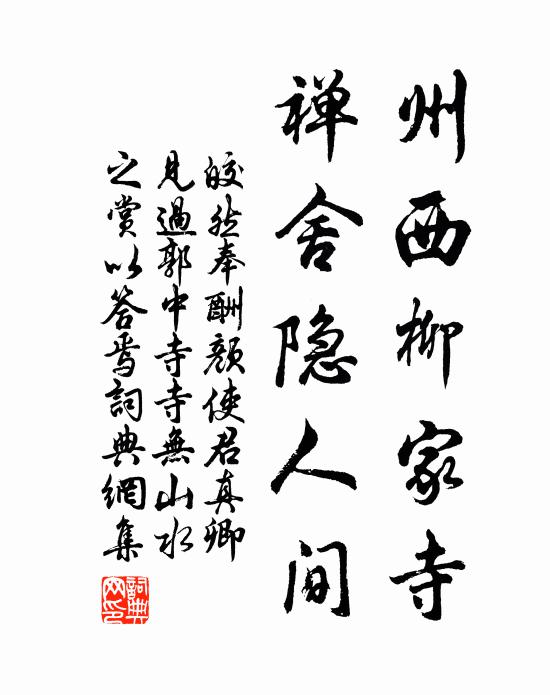 州西柳家寺
禅舍隐人间
皎然奉酬颜使君真卿
见過郭中寺寺無山水
之赏以答焉詞典網集
詞典
网印